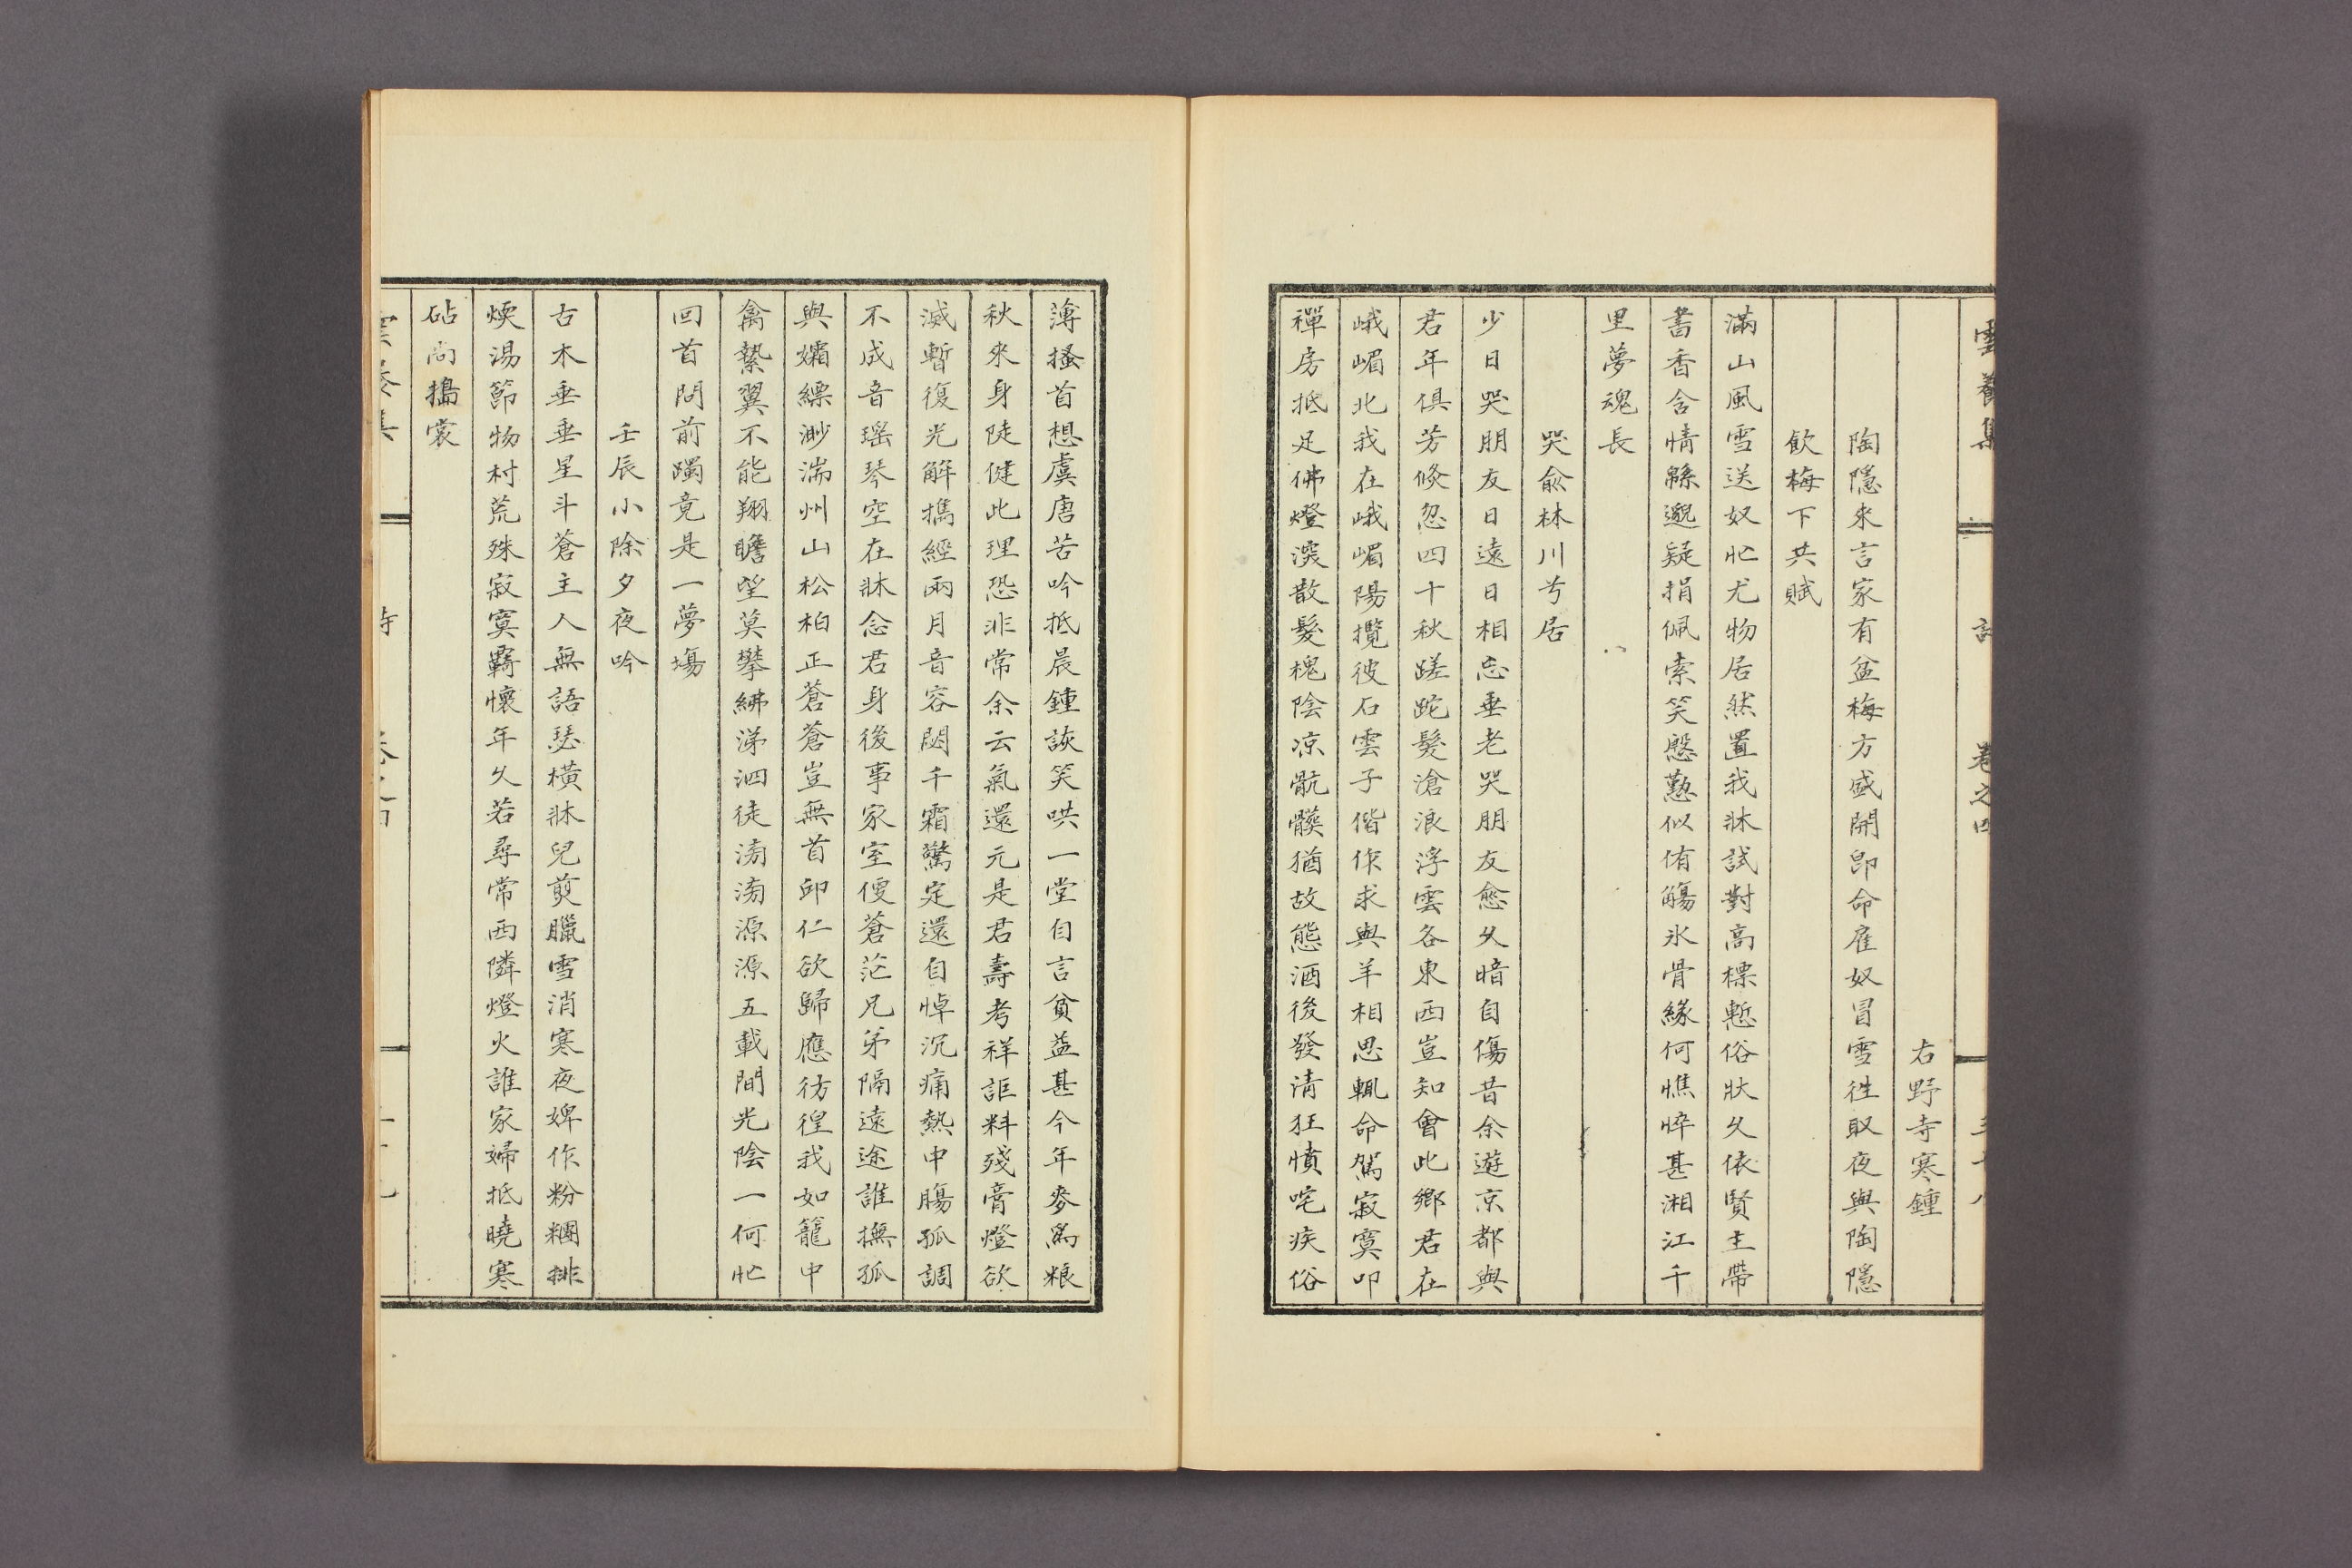 雲養集　詩　卷之四
右野寺寒鍾
陶隱來言家有盆梅方盛開卽命雇奴冒雪徃取夜與陶隱
飮梅下共賦
滿山風雪送奴忙尤物居然置我牀試對高標慙俗狀久依賢主帶
書香含情緜邈疑捐佩索笑慇懃似侑觴氷骨緣何憔悴甚湘江千
里夢魂長
哭兪林川兮居
少日哭朋友日遠日相忘垂老哭朋友愈久暗自傷昔余遊京都與
君年俱芳倐忽四十秋蹉跎髮滄浪浮雲各東西豈知會此鄕君在
峨嵋北我在峨嵋陽攬彼石雲子偕作求與羊相思輒命駕寂寞叩
禪房抵足佛燈深散髮槐陰凉骯髒猶故態酒後發淸狂憤咤疾俗
薄搔首想虞唐苦吟抵晨鍾詼笑哄一堂自言貧益甚今年麥爲粮
秋來身陡健此理恐非常余云氣還元是君壽考祥詎料殘膏燈欲
滅暫復光解擕經兩月音容閟千霜驚定還自悼沉痛熱中膓孤調
不成音瑤琴空在牀念君身後事家室儍蒼茫兄弟隔遠途誰撫孤
與孀縹渺湍州山松柏正蒼蒼豈無首邱仁欲歸應彷徨我如籠中
禽縶翼不能翔瞻望莫攀紼涕泗徒滂滂源源五載間光陰一何忙
回首問前躅竟是一夢塲
壬辰小除夕夜吟
古木垂垂星斗蒼主人無語瑟橫牀兒剪臘雪消寒夜婢作粉糰排
煗湯節物村荒殊寂寞覊懷年久若尋常西隣燈火誰家婦抵曉寒
砧尙搗裳